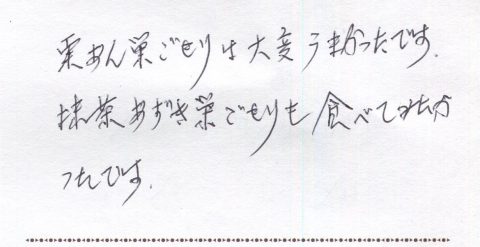 栗あん巣ごもりは大変うまかったです.
抹茶あずき巣ごもりも食べてみたか
ったです.